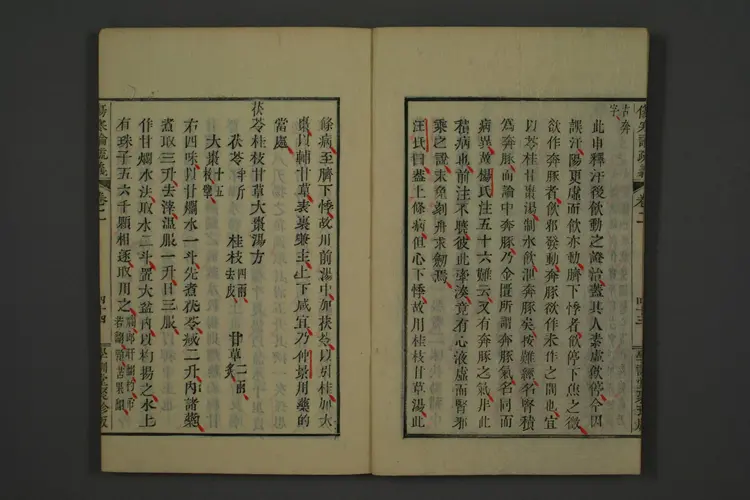 此申釋汗後飲動之證治蓋其人素虛飲停今因
誤汗陽更虛而飲亦動臍下悸者飲停下焦之徵
欲作奔豚者飲邪發動奔豚欲作未作之間也宜
以苓桂甘棗湯制水飲泄奔豚矣按難經名腎積
為奔豚而論中奔豚乃金匱所謂奔豚氣名同而
病異故楊氏注五十六難云又有奔豚之氣非此
積病也前注不暁彼此牽湊竟有心液虛而腎邪
乘之說末免刻舟求劒焉
汪氏曰蓋上條病但心下悸故用桂枝甘草湯此
古奔
字
傷寒論疏義
卷二
四十三
條病至臍下悸故用前湯中加茯苓以引桂加大
棗以輔甘草表裏兼主上下咸宜乃仲景用藥的
當處
茯苓桂枝甘草大棗湯方
茯苓半斤 桂枝四兩去皮 甘草二兩炙
大棗十五枚擘
右四味以甘爛水一斗先煮茯苓減二升內諸藥
煮取三升去滓溫服一升日三服
作甘爛水法取水二斗置大盆內以杓揚之水上
有珠子五六千顆相逐取用之
傷寒論疏義
卷二
四十四